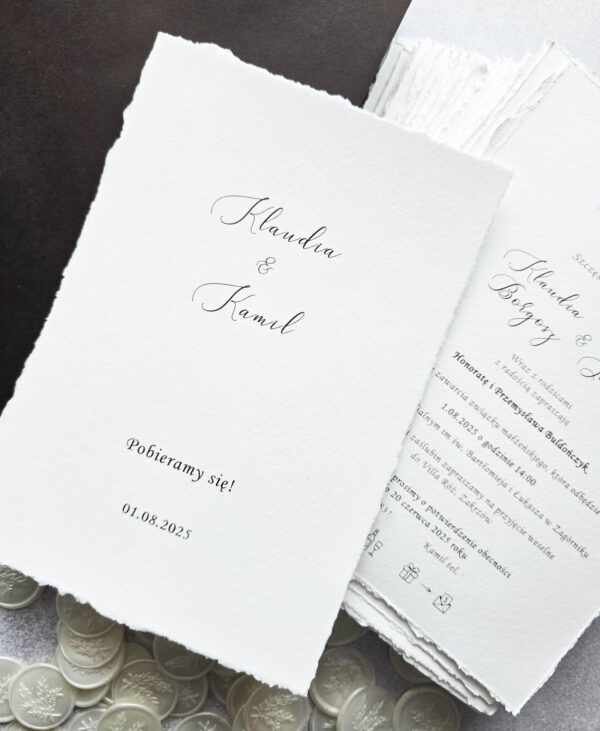 Klaudia
&
Kamil
Pobieramy się!
01.08.2025
Klaudia
Borgosz
&
Wraz z rodzicami
z radością zapraszają
Honoratę i Przemysława Bułdończyk
zawarcia związku małżeńskiego, która odbędzie
1.08.2025 o godzinie 14:00
im św. Bartłomieja i Łukasza w Zagórniku
zaślubin zapraszamy na przyjęcie weselne
do Villa Róż, Zakrzów.
prosimy o potwierdzenie obecności
20 czerwca 2025 roku
Kamil tel.